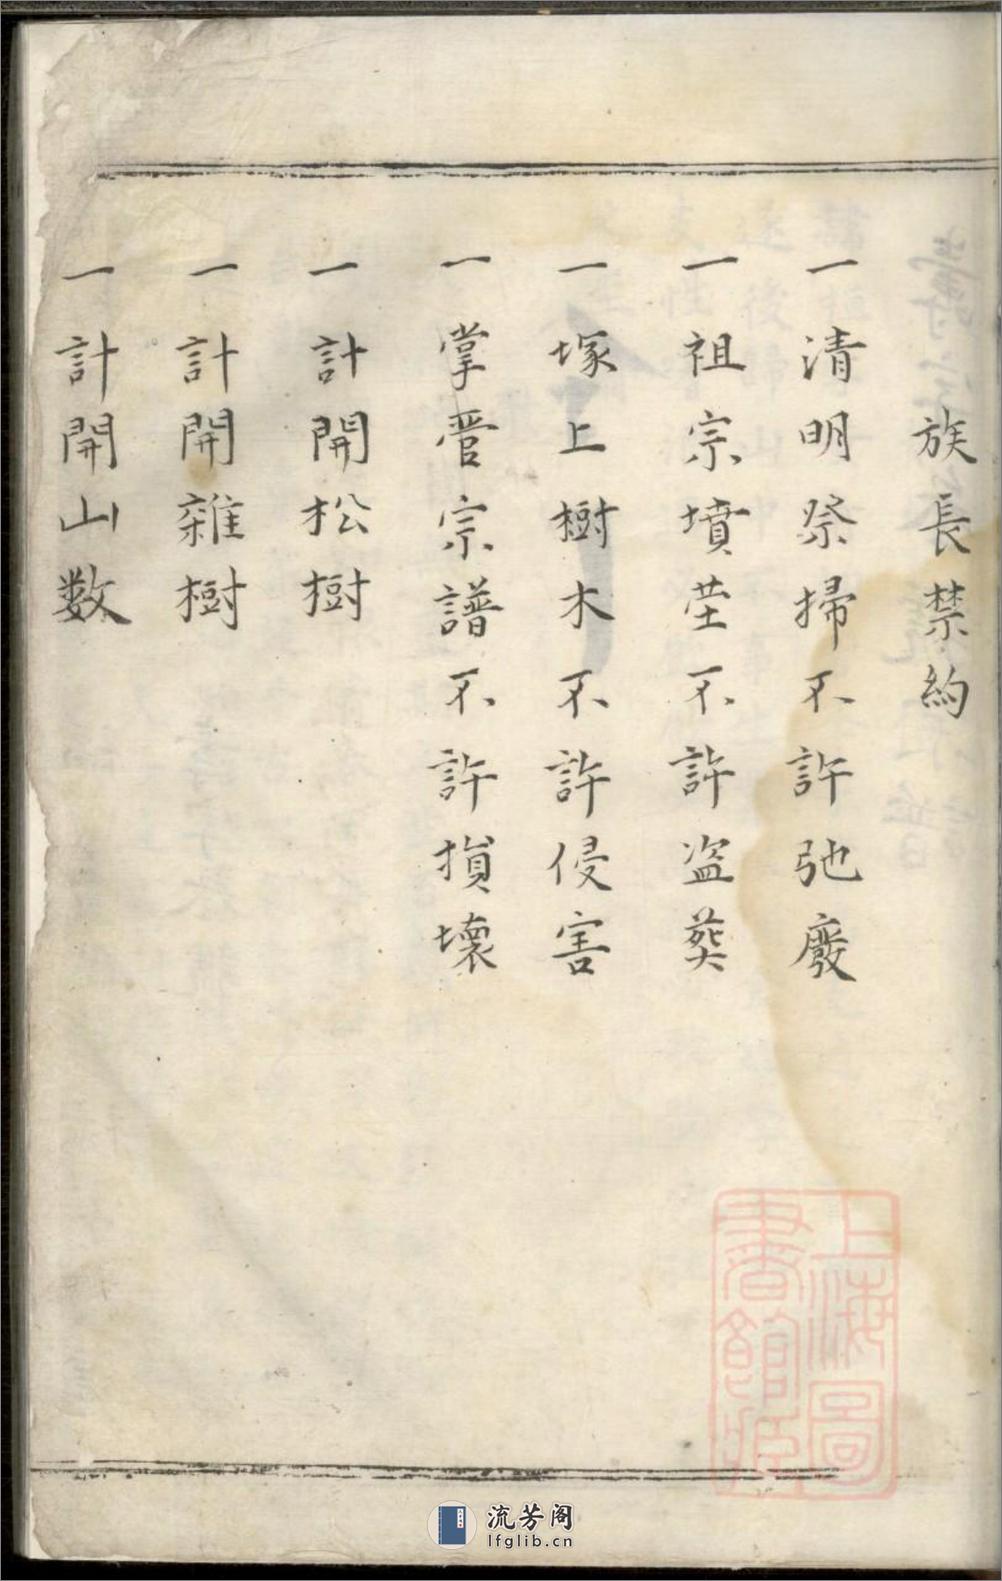 族長禁約
一清明祭掃不許弛廢
一祖宗墳茔不許盗葵
一塚上樹木不許侵害
一掌管宗譜不許損壞
一計開松樹
一計開雜樹
一計開山数
上海圖
書館藏
流芳阁
lfglib.cn